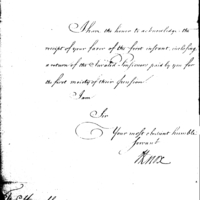 I have the honor to acknowledge the
receipt of your favor of the first instant, inclosing
a return of the Invalid Pensioners paid by you for
the first moiety of their pension
I am
Sir
Your most obedient humble
servant
HKnox